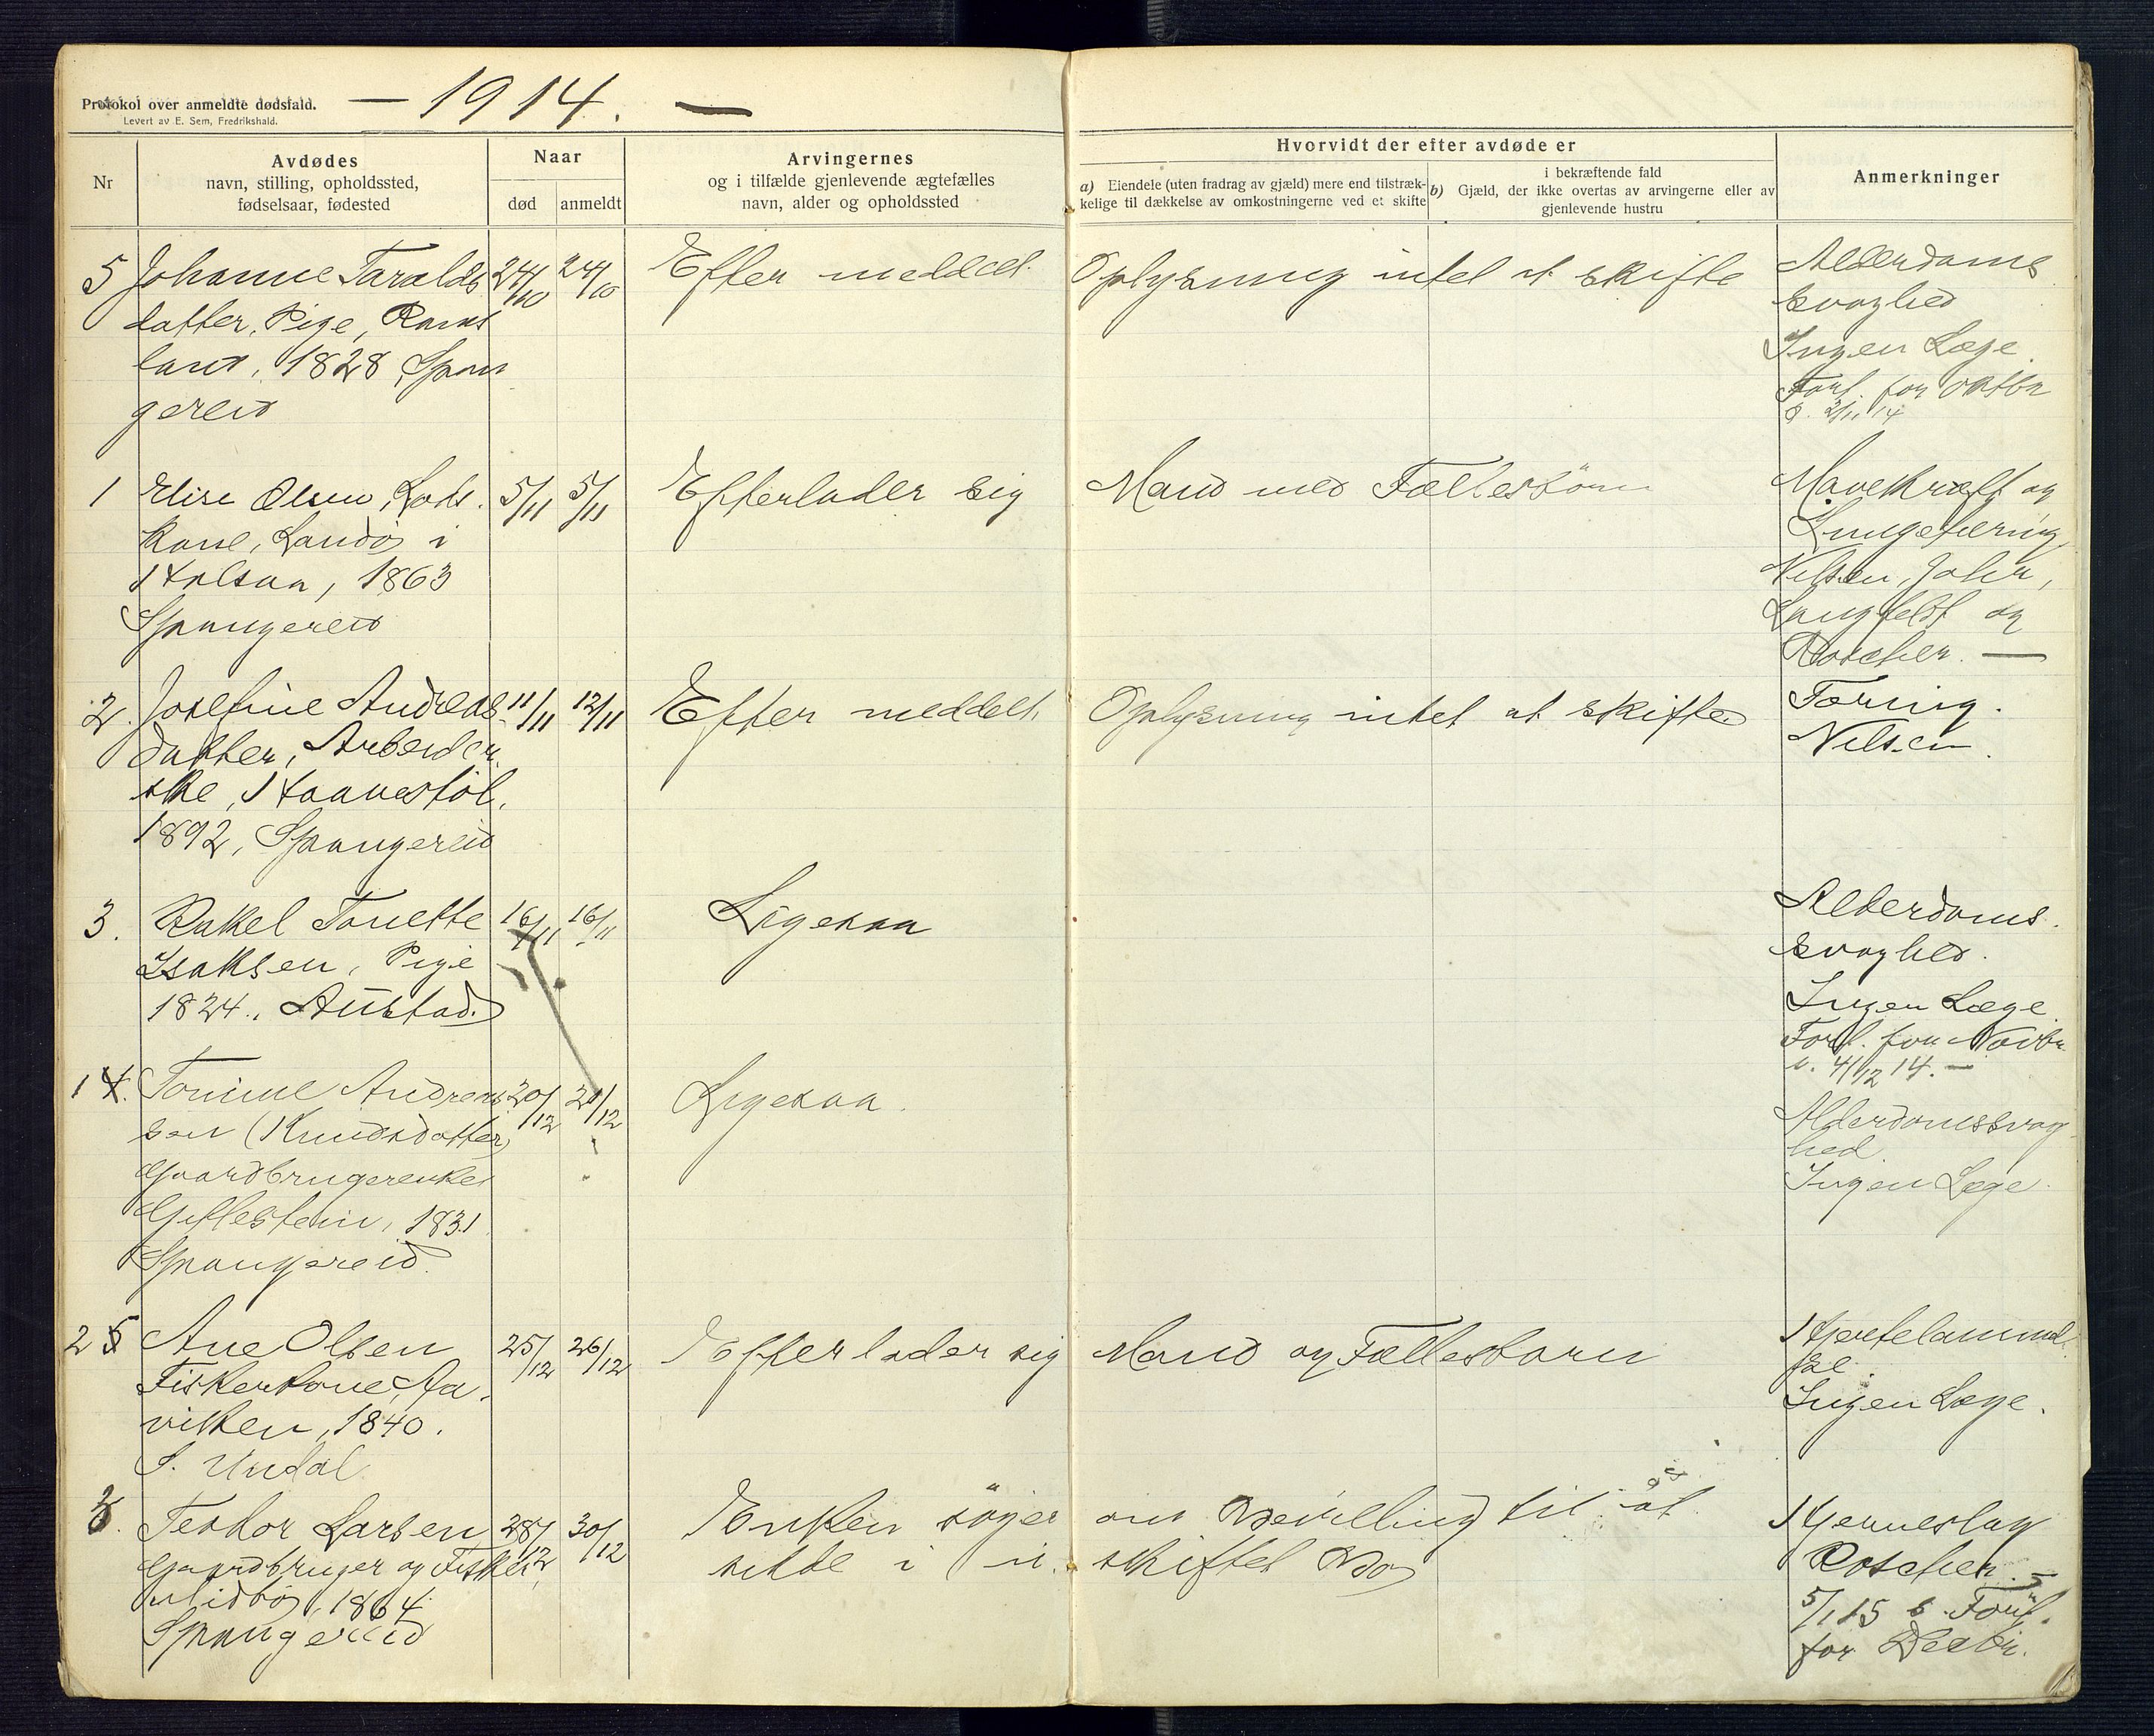 Protokol over anmeldte dødsfald.
Levert av E. Sem, Fredrikshald.
— 1914. —
Nr
Avdødes
navn, stilling, opholdssted,
fødselsaar, fødested
Naar
død
anmeldt
Arvingernes
og i tilfælde gjenlevende ægtefælles
navn, alder og opholdssted
Hvorvidt der efter avdøde er
a) Eiendele (uten fradrag av gjæld) mere end tilstræk-
kelige til dækkelse av omkostningerne ved et skifte
i bekræftende fald
b) Gjæld, der ikke overtas av arvingerne eller av
gjenlevende hustru
Anmerkninger
5 Johanne Taralds 24/10 24/10 Efter meddelt Oplysning intet at skifte
datter, Pige, Rams
land, 1828 Span
gereid
Alderdoms
svaghed
Ingen Læge.
Forl. for Oktbr
s. 2/11 14
1 Elise Olsen, Lods 5/11 5/11 Efterlader sig Mand med Fællesbörn
kone, Landö i
Halsaa, 1863
Spangereid
Mavekræft og
Lungetæring
Nilsen, John,
Langfeldt og
Roscher. —
2. Josefine Andreas 11/11 12/11 Efter meddelt Oplysning intet at skifte
datter, Arbeider
ske, Haavestöl,
1892, Spangereid
Tæring.
Nilsen.
3. Rakel Tonette 16/11 16/11 Ligesaa
Isaksen, Pige
1824., Austad.
Alderdoms
svaghed.
Ingen Læge.
Forl. for Novbr.
s. 4/12 14. —
1 4. Tomine Andreas 20/12 21/12 Ligesaa.
sen (Knudsdatter)
Gaardbrugerenke
Gitlestein, 1831
Spangereid.
Alderdomssvag
hed.
Ingen Læge.
2 5 Ane Olsen 25/12 26/12 Efterlader sig Mand og Fællesbarn
Fiskerkone, Aa
viken, 1840.
S. Undal.
Hjertelammel
se.
Ingen Læge.
3. Teodor Larsen 28/12 30/12 Enken söger om Bevilling til at
Gaardbruger og Fisker, sidde i u. skiftet Bo
Midbö, 1864.
Spangereid
Hjerneslag
Roscher. —
5/1 15 s. Forl.
for Decbr.